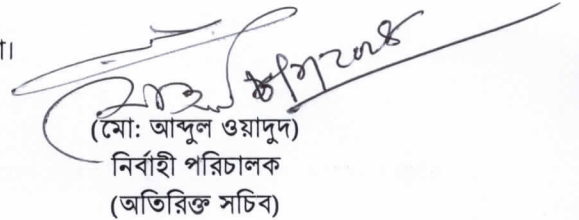 া।
(মো: আব্দুল ওয়াদুদ)
নির্বাহী পরিচালক
(অতিরিক্ত সচিব)